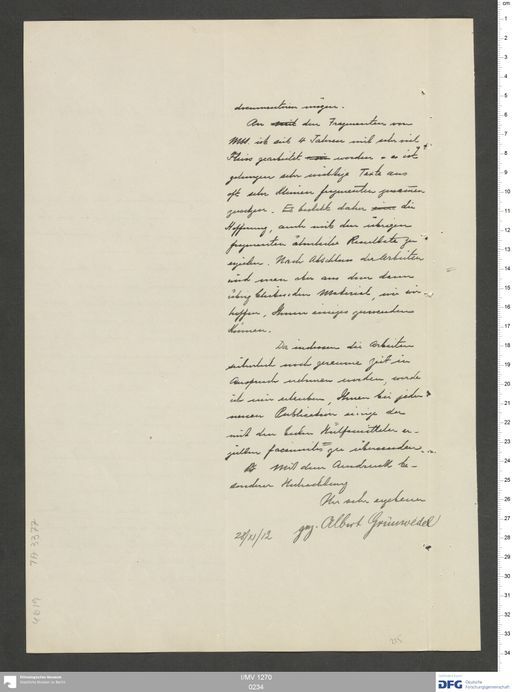 documentieren mögen.
An den Fragmenten von
MSS. ist seit 4 Jahren mit sehr viel
Fleiss gearbeitet worden u. es ist
gelungen sehr wichtige Texte aus
oft sehr kleinen Fragmenten zusammen
zusetzen. Es besteht daher die
Hoffnung, auch mit den übrigen
Fragmenten ähnliche Resultate zu
erzielen. Nach Abschluss der Arbeiten
wird man aber aus dem dann
übrig bleibenden Material, wie wir
hoffen, Ihnen einiges zuwenden
können.
Da indessen die Arbeiten
sicherlich noch geraume Zeit in
Anspruch nehmen werden, werde
ich mir erlauben, Ihnen bei jeder
neuen Publication einige der
mit den besten Hülfsmitteln er-
zielten facsimiles zu übersenden.
Mit dem Ausdruck be-
sonderer Hochachtung
Ihr sehr ergebener
gez. Albert Grünwedel
28/XI/12
TA 3377
4819
235
Ethnologisches Museum
Staatliche Museen zu Berlin
I/MV 1270
0234
DFG Deutsche
Forschungsgemeinschaft
cm
1
2
3
4
5
6
7
8
9
10
11
12
13
14
15
16
17
18
19
20
21
22
23
24
25
26
27
28
29
30
31
32
33
34